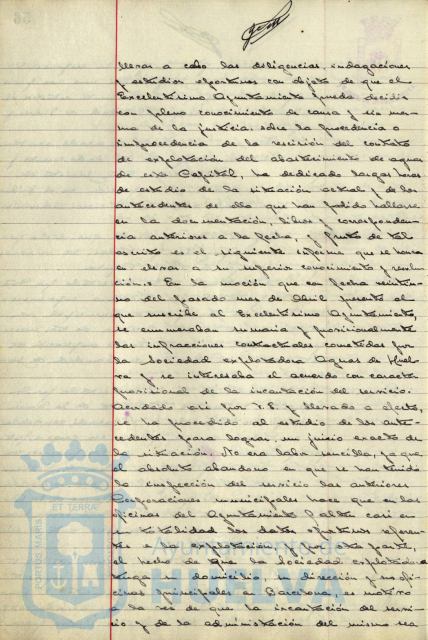 llevar a cabo las diligencias, indagaciones
y estudios oportunos con objeto de que el
Excelentísimo Ayuntamiento pueda decidir
con pleno conocimiento de causa y sin mer-
ma de la justicia sobre la procedencia o
improcedencia de la rescisión del contrato
de explotación del abastecimiento de aguas
de esta Capital, ha dedicado largas horas
de estudio de la situación actual y de los
antecedentes de ella que han podido hallarse
en la documentación, libros y corresponden-
cia anteriores a la fecha, y fruto de tal
escrito es el siguiente informe que se honra
en elevar a su superior conocimiento y resolu-
ción.= En la moción que con fecha veintiuno
del pasado mes de Abril presentó el
que suscribe al Excelentísimo Ayuntamiento,
se enumeraban sumaria y provisionalmente
las infracciones contractuales cometidas por
la Sociedad explotadora Aguas de Huel-
va y se interesaba el acuerdo con carácter
provisional de la incautación del servicio.
Acordado así por V.E. y llevado a efecto,
se ha procedido al estudio de los ante-
cedentes para lograr un juicio exacto de
la situación. No era labor sencilla, ya que
el absoluto abandono en que se han tenido
la inspección del servicio las anteriores
Corporaciones municipales hace que en las
oficinas del Ayuntamiento falten casi en
su totalidad los datos oportunos referen-
tes a la explotación y por otra parte,
el hecho de que la Sociedad explotadora
tenga su domicilio, su dirección y sus ofi-
cinas principales en Barcelona, es motivo
a la vez de que la incautación del servi-
cio y de la administración del mismo sea
PORTUS MARIS ET TERRAE
Ayuntamiento de
HUELVA